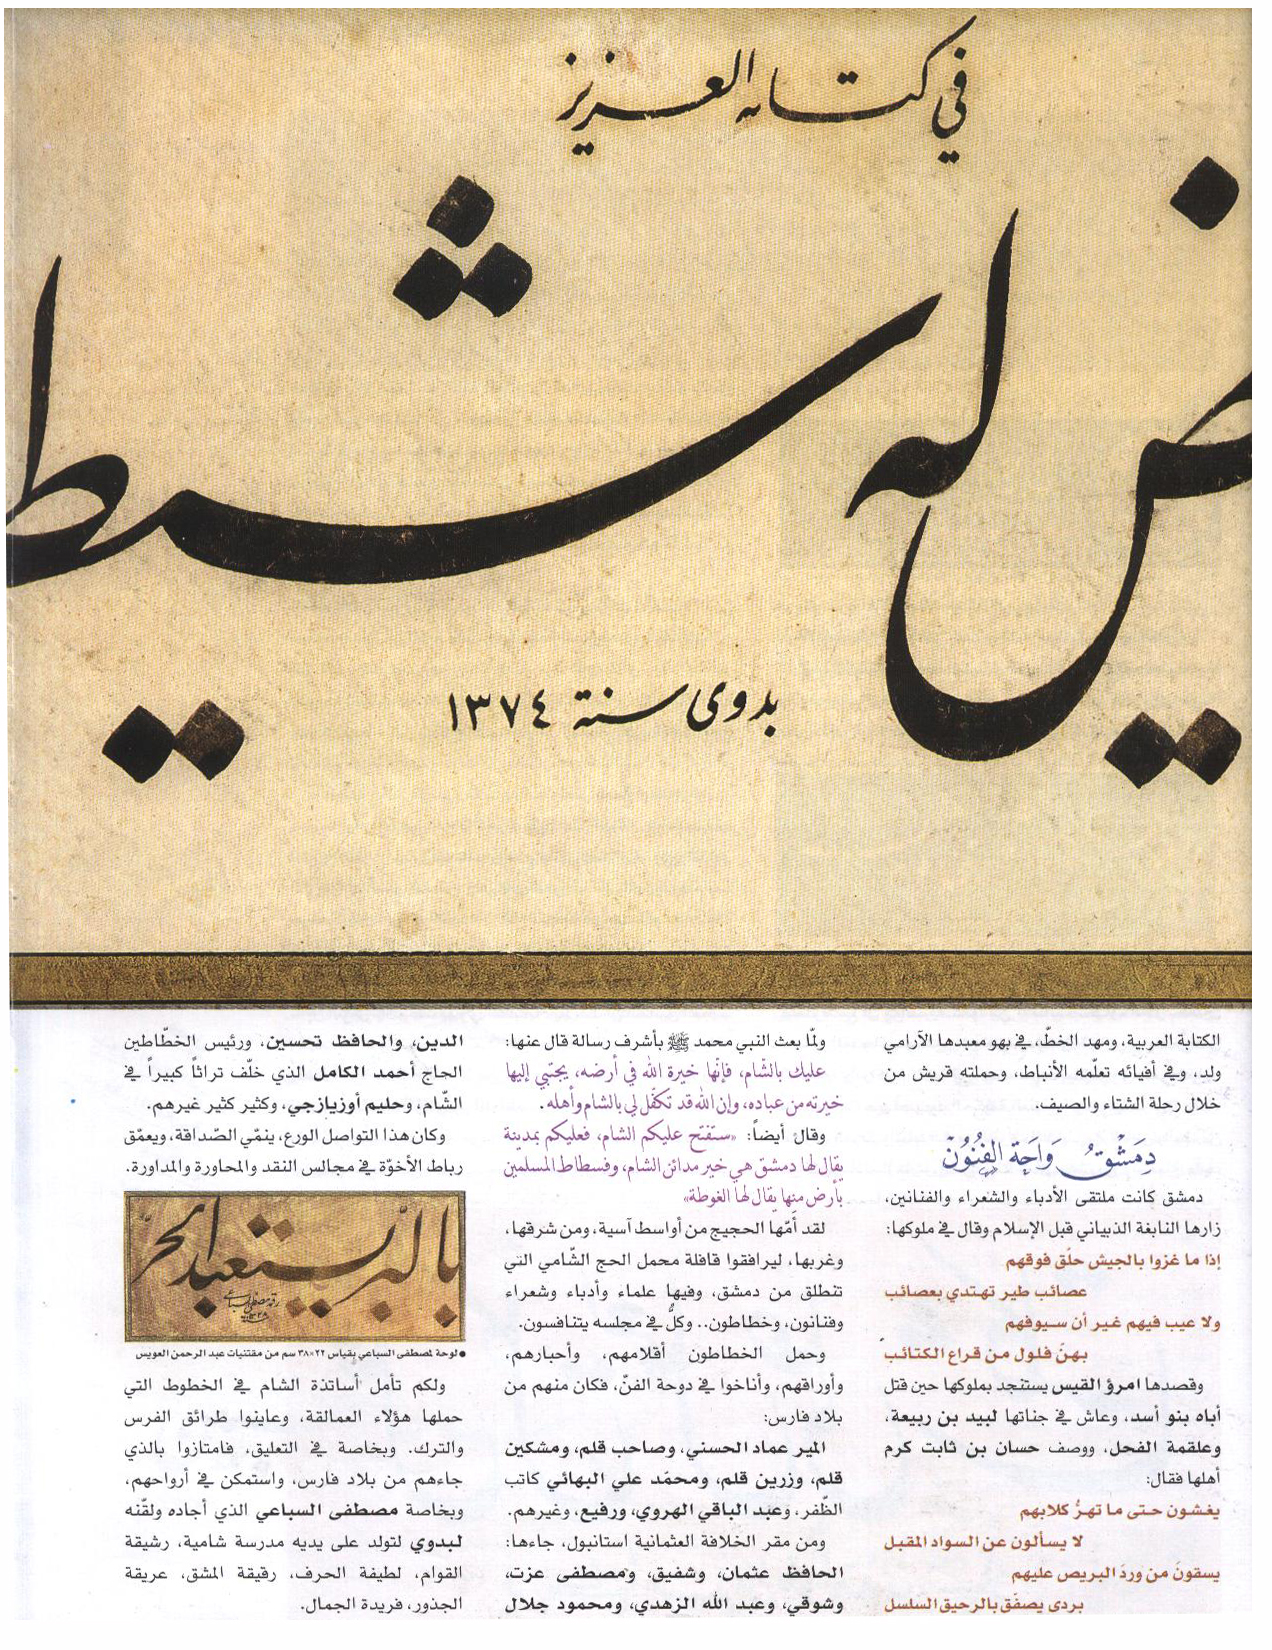 في كتابه العزيز
ض له شيط
بدوي سنة ١٣٧٤
الكتابة العربية، ومهد الخطّ، في بهو معبدها الآرامي
ولد، وفي أفيائه تعلّمه الأنباط، وحملته قريش من
خلال رحلة الشتاء والصيف.
دِمَشْقُ وَاحَةُ الفُنُوْن
دمشق كانت ملتقى الأدباء والشعراء والفنانين،
زارها النابغة الذبياني قبل الإسلام وقال في ملوكها:
إذا ما غزوا بالجيش حلّق فوقهم
عصائب طير تهتدي بعصائب
ولا عيب فيهم غير أن سيوفهم
بهنّ فلول من قراع الكتائب
وقصدها امرؤ القيس يستنجد بملوكها حين قتل
أباه بنو أسد، وعاش في جناتها لبيد بن ربيعة،
وعلقمة الفحل، ووصف حسان بن ثابت كرم
أهلها فقال:
يغشون حتى ما تهرُّ كلابهم
لا يسألون عن السواد المقبل
يسقونَ من وردَ البريص عليهم
بردى يصفّق بالرحيق السلسل
ولمّا بعث النبي محمد ﷺ بأشرف رسالة قال عنها:
عليك بالشام، فإنّها خيرة الله في أرضه، يجتبي إليها
خيرته من عباده، وإن الله قد تكفّل لي بالشام وأهله.
وقال أيضاً: «ستفتح عليكم الشام، فعليكم بمدينة
يقال لها دمشق هي خير مدائن الشام، وفسطاط المسلمين
بأرض منها يقال لها الغوطة»
لقد أمّها الحجيج من أواسط آسية، ومن شرقها،
وغربها، ليرافقوا قافلة محمل الحج الشّامي التي
تنطلق من دمشق، وفيها علماء وأدباء وشعراء
وفنانون، وخطاطون.. وكلٌّ في مجلسه يتنافسون.
وحمل الخطاطون أقلامهم، وأحبارهم،
وأوراقهم، وأناخوا في دوحة الفنّ، فكان منهم من
بلاد فارس:
المير عماد الحسني، وصاحب قلم، ومشكين
قلم، وزرين قلم، ومحمّد علي البهائي كاتب
الظّفر، وعبد الباقي الهروي، ورفيع، وغيرهم.
ومن مقر الخلافة العثمانية استانبول، جاءها:
الحافظ عثمان، وشفيق، ومصطفى عزت،
وشوقي، وعبد الله الزهدي، ومحمود جلال
الدين، والحافظ تحسين، ورئيس الخطّاطين
الحاج أحمد الكامل الذي خلّف تراثاً كبيراً في
الشّام، وحليم أوزيازجي، وكثير كثير غيرهم.
وكان هذا التواصل الورع، ينمّي الصّداقة، ويعمّق
رباط الأخوّة في مجالس النقد والمحاورة والمداورة.
بالبر يستعبد الحر
رقمه مصطفى السباعي
● لوحة لمصطفى السباعي بقياس ٢٢×٣٨ سم من مقتنيات عبد الرحمن العويس
ولكم تأمل أساتذة الشام في الخطوط التي
حملها هؤلاء العمالقة، وعاينوا طرائق الفرس
والترك. وبخاصة في التعليق، فامتازوا بالذي
جاءهم من بلاد فارس، واستمكن في أرواحهم،
وبخاصة مصطفى السباعي الذي أجاده ولقّنه
لبدوي لتولد على يديه مدرسة شامية، رشيقة
القوام، لطيفة الحرف، رقيقة المشق، عريقة
الجذور، فريدة الجمال.